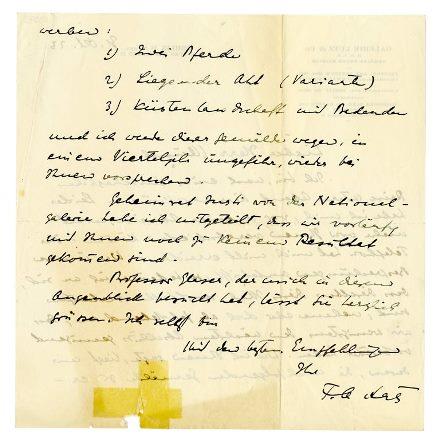 werben:
1) Zwei Pferde
2) Liegender Akt (Variante)
3) Küstenlandschaft mit Badenden
und ich werde dieser Gemälde wegen, in
einem Vierteljahr ungefähr, wieder bei
Ihnen vorsprechen.
Geheimrat Justi von der National-
galerie habe ich mitgeteilt, dass wir vorläufig
mit Ihnen noch zu keinem Resultat
gekommen sind.
Professor Glaser, der mich in diesem
Augenblick besucht hat, lässt Sie herzlich
grüssen. Ich selbst bin
Mit den besten Empfehlungen
Ihr
GALERIE LUTZ & CO